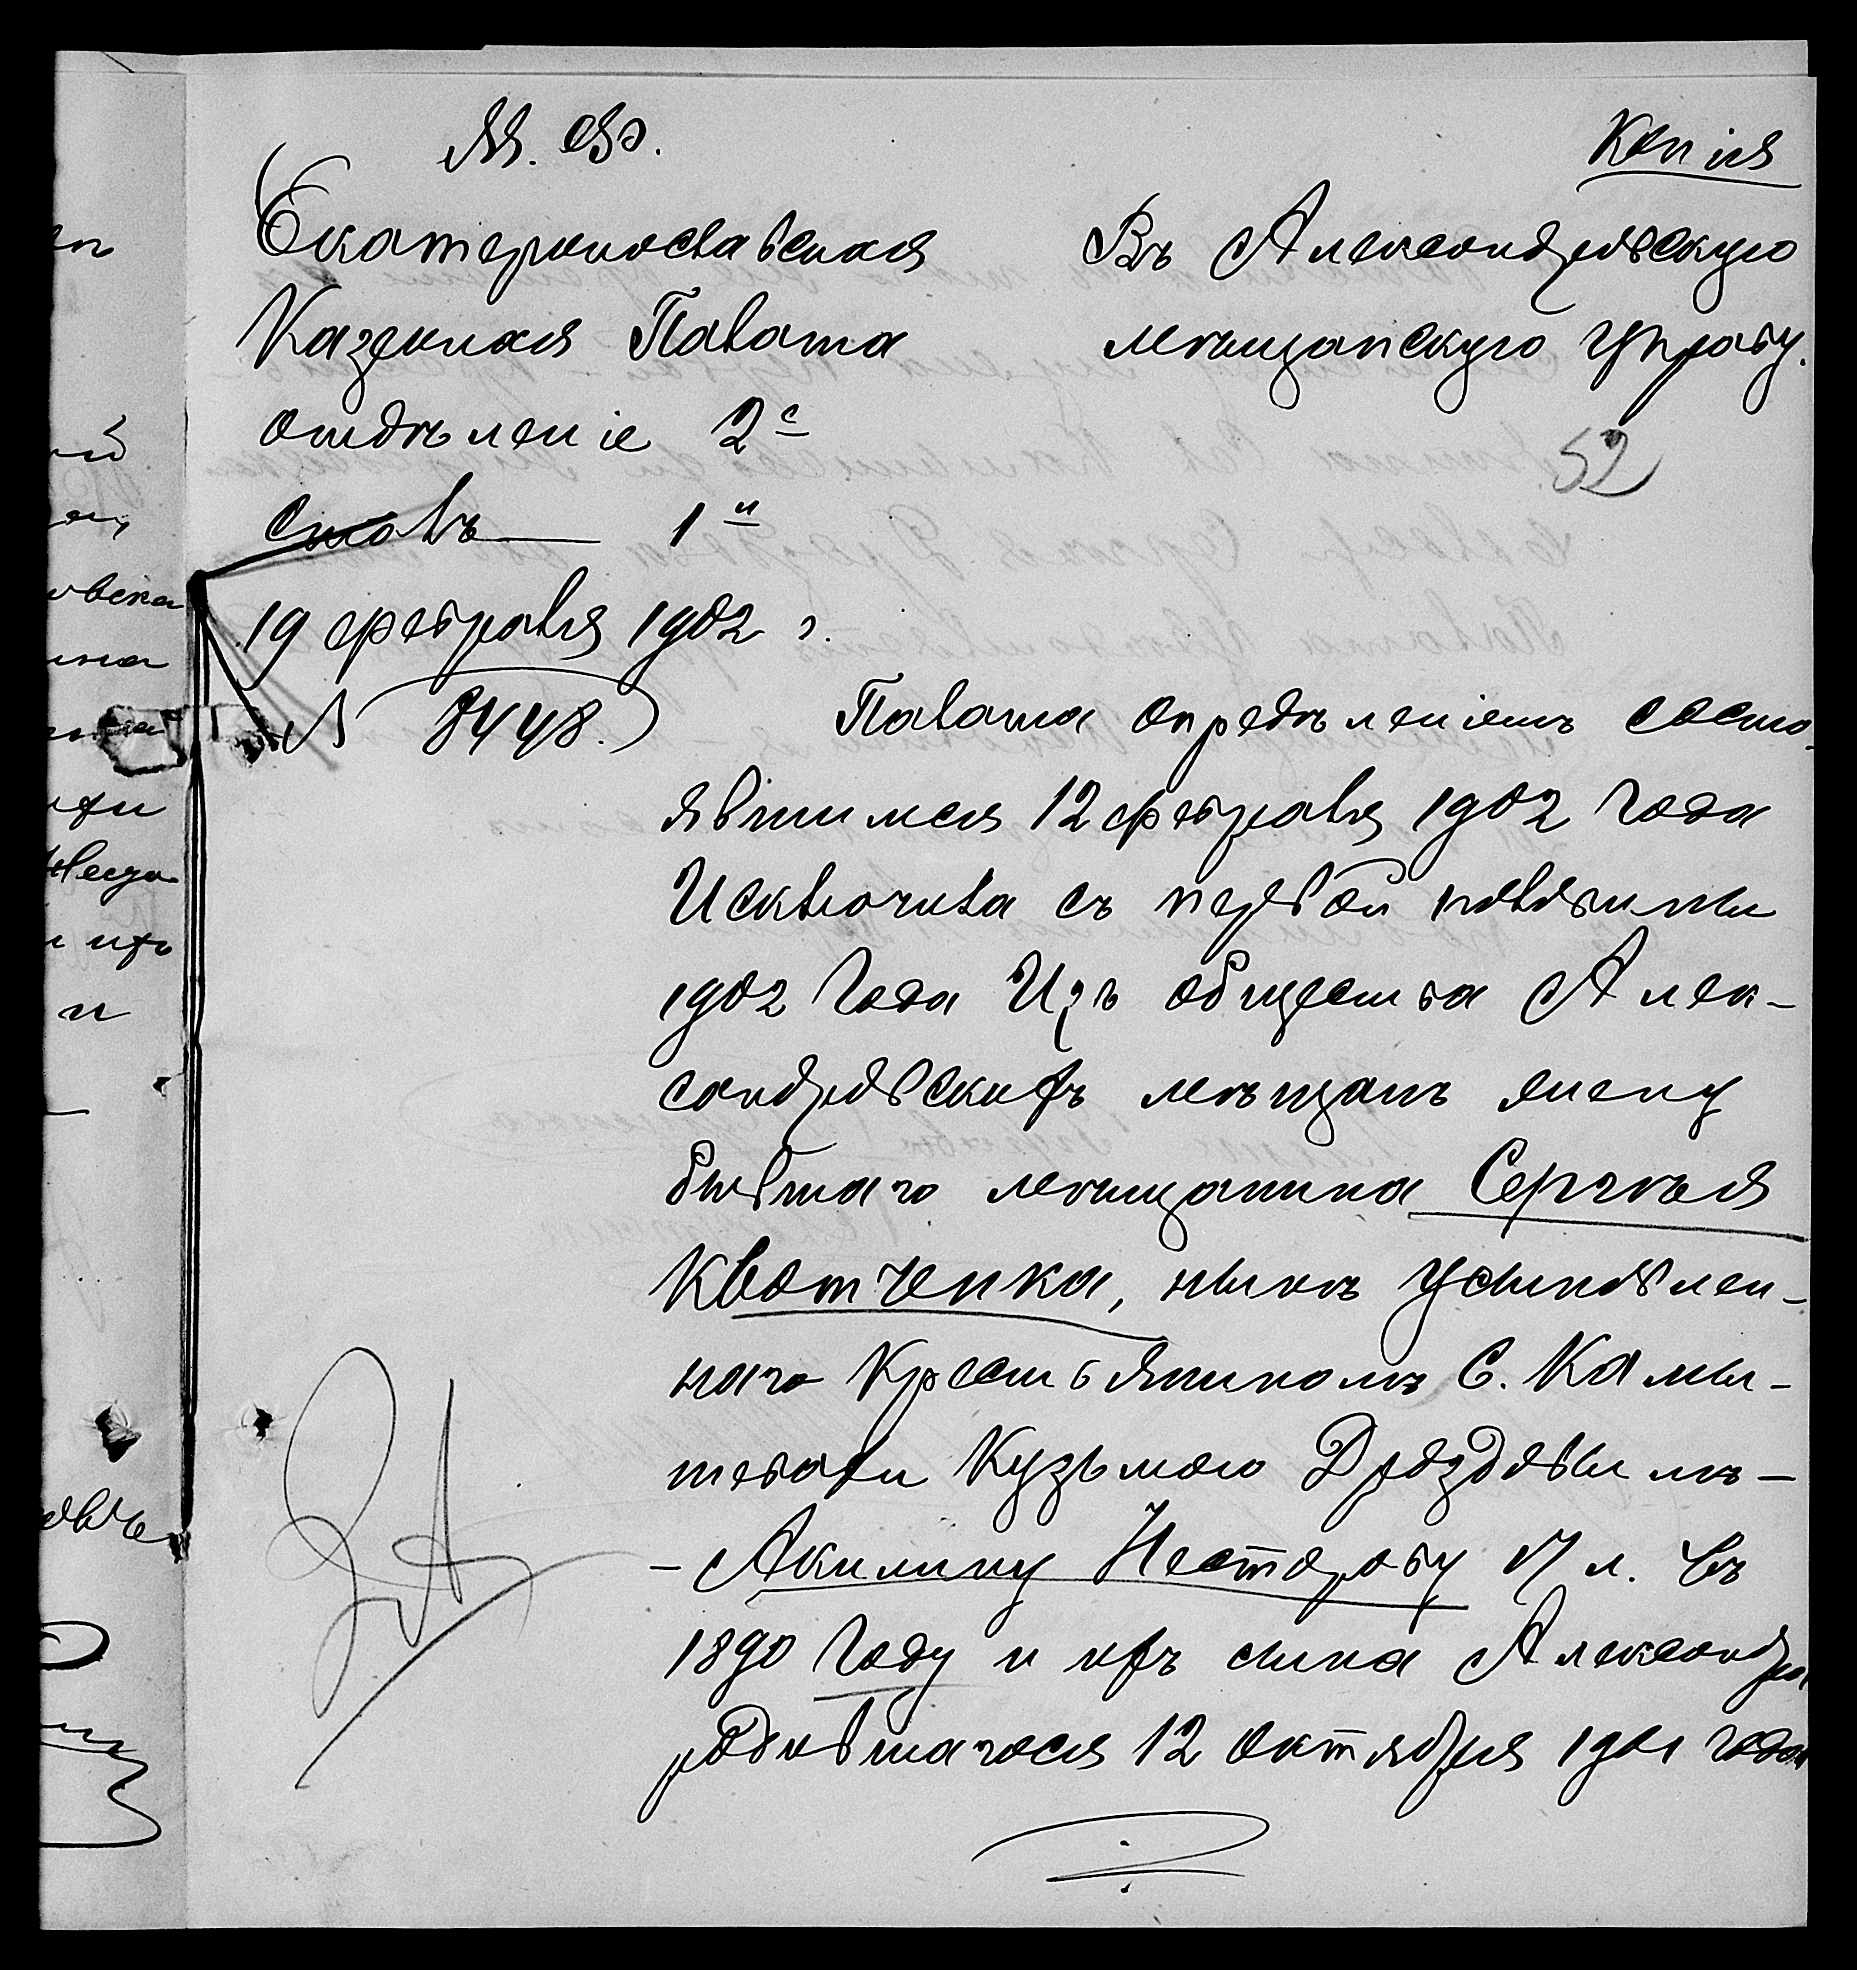 М. Ф.
Копія
Екатеринославская
Казенная Палата
отдѣленіе 2е
Столъ 1й
19 февраля 1902 г.
№ 8448.
Въ Александровскую
мѣщанскую Управу.
52
Палата опредѣленіемъ состо-
явшимся 12 февраля 1902 года
Исключила съ первой половины
1902 года Изъ общества Алек-
сандровскихъ мѣщанъ жену
бывшаго мѣщанина Сергѣя
Клотченка, нынѣ Усыновлен-
наго Крестьяниномъ С. Камы-
шевахи Кузьмою Дроздовымъ –
– Акилину Нестерову 17 л. въ
1890 Году и ихъ сына Александра
родившагося 12 октября 1901 года